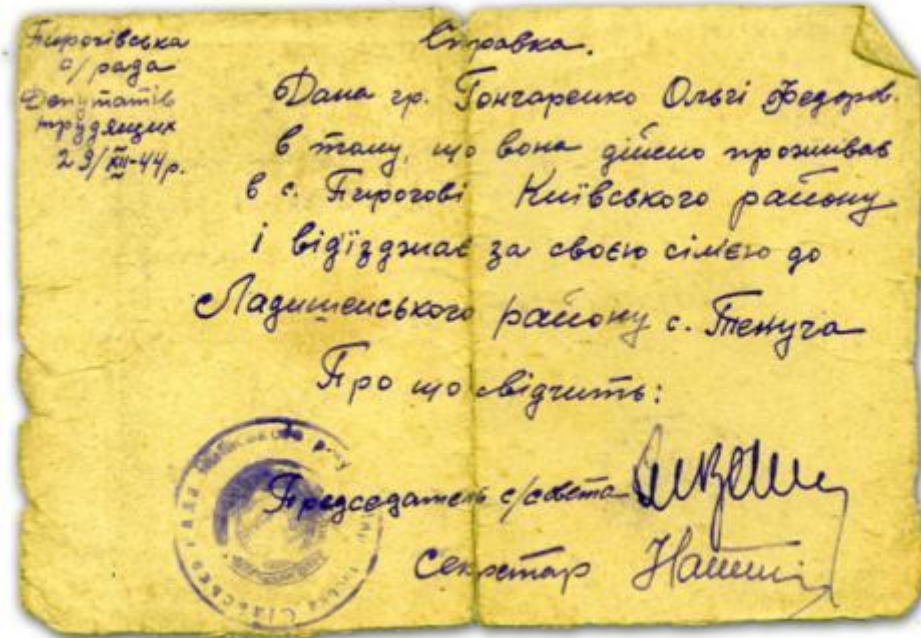 Пирогівська
с/рада
Депутатів
трудящих
23/XII-44р.
Справка.
Дана гр. Гончаренко Ользі Федоров.
в тому, що вона дійсно проживає
в с. Пирогові Київського району
і від'їзджає за своєю сімією до
Ладишенського району с. Текуча
Про що свідчить:
Председатель с/совета
Секретар